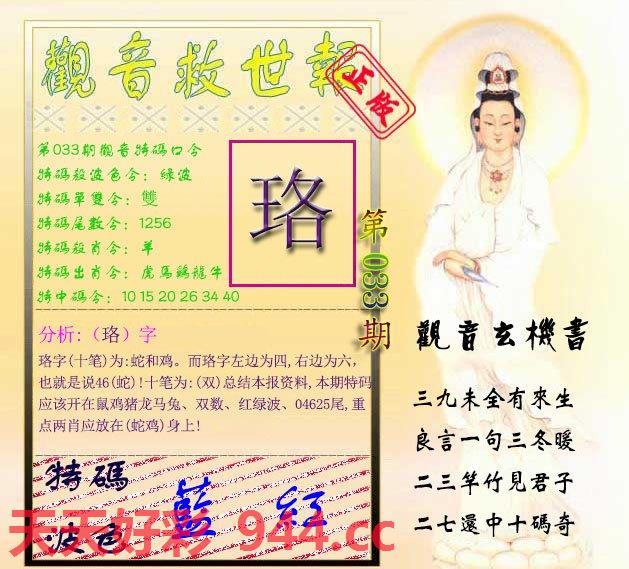 觀音救世報
正版
第033期觀音特碼口令
特碼殺波色令：綠波
特碼單雙令：雙
特碼尾數令：1256
特碼殺肖令：羊
特碼出肖令：虎馬鷄龍牛
特中碼令：10 15 20 26 34 40
珞
第033期
分析:（珞）字
珞字(十笔)为:蛇和鸡。而珞字左边为四,右边为六，
也就是说46(蛇)!十笔为:(双)总结本报资料,本期特码
应该开在鼠鸡猪龙马兔、双数、红绿波、04625尾,重
点两肖应放在(蛇鸡)身上!
特碼
波色
藍 紅
天天好彩 944.cc
觀音玄機書
三九未全有來生
良言一句三冬暖
二三竿竹見君子
二七還中十碼奇